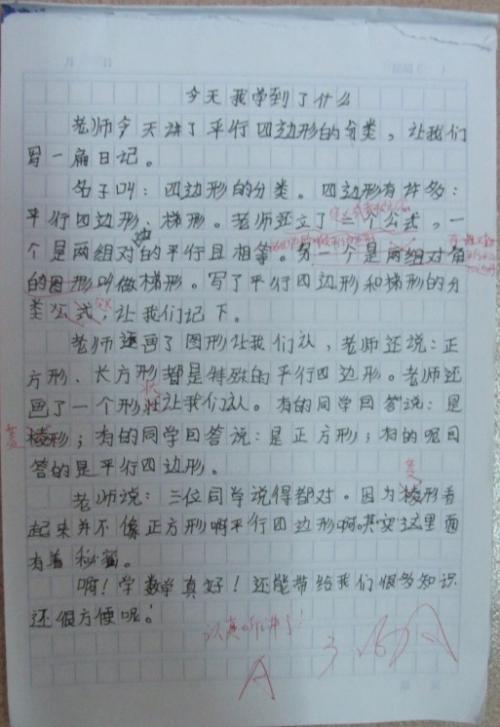 今天我学到了什么
老师今天讲了平行四边形的分类，让我们
写一扁日记。
名子叫：四边形的分类。四边形有许多：
平行四边形、梯形。老师还立了二个公式，一
个是两组对边的平行且相等。另一个是两组对角
的图形叫做梯形。写了平行四边形和梯形的分
类公式，让我们记下。
老师还画了图形让我们认，老师还说：正
方形、长方形都是特殊的平行四边形。老师还
画了一个形状让我们认。有的同学回答说：是
棱形；有的同学回答说：是正方形；有的呢回
答的是平行四边形。
老师说：三位同学说得都对。因为棱形看
起来并不像正方形啊平行四边形啊。其实这里面
有着秘密。
啊！学数学真好！还能带给我们很多知识
还很方便呢！
认真听讲了！
A